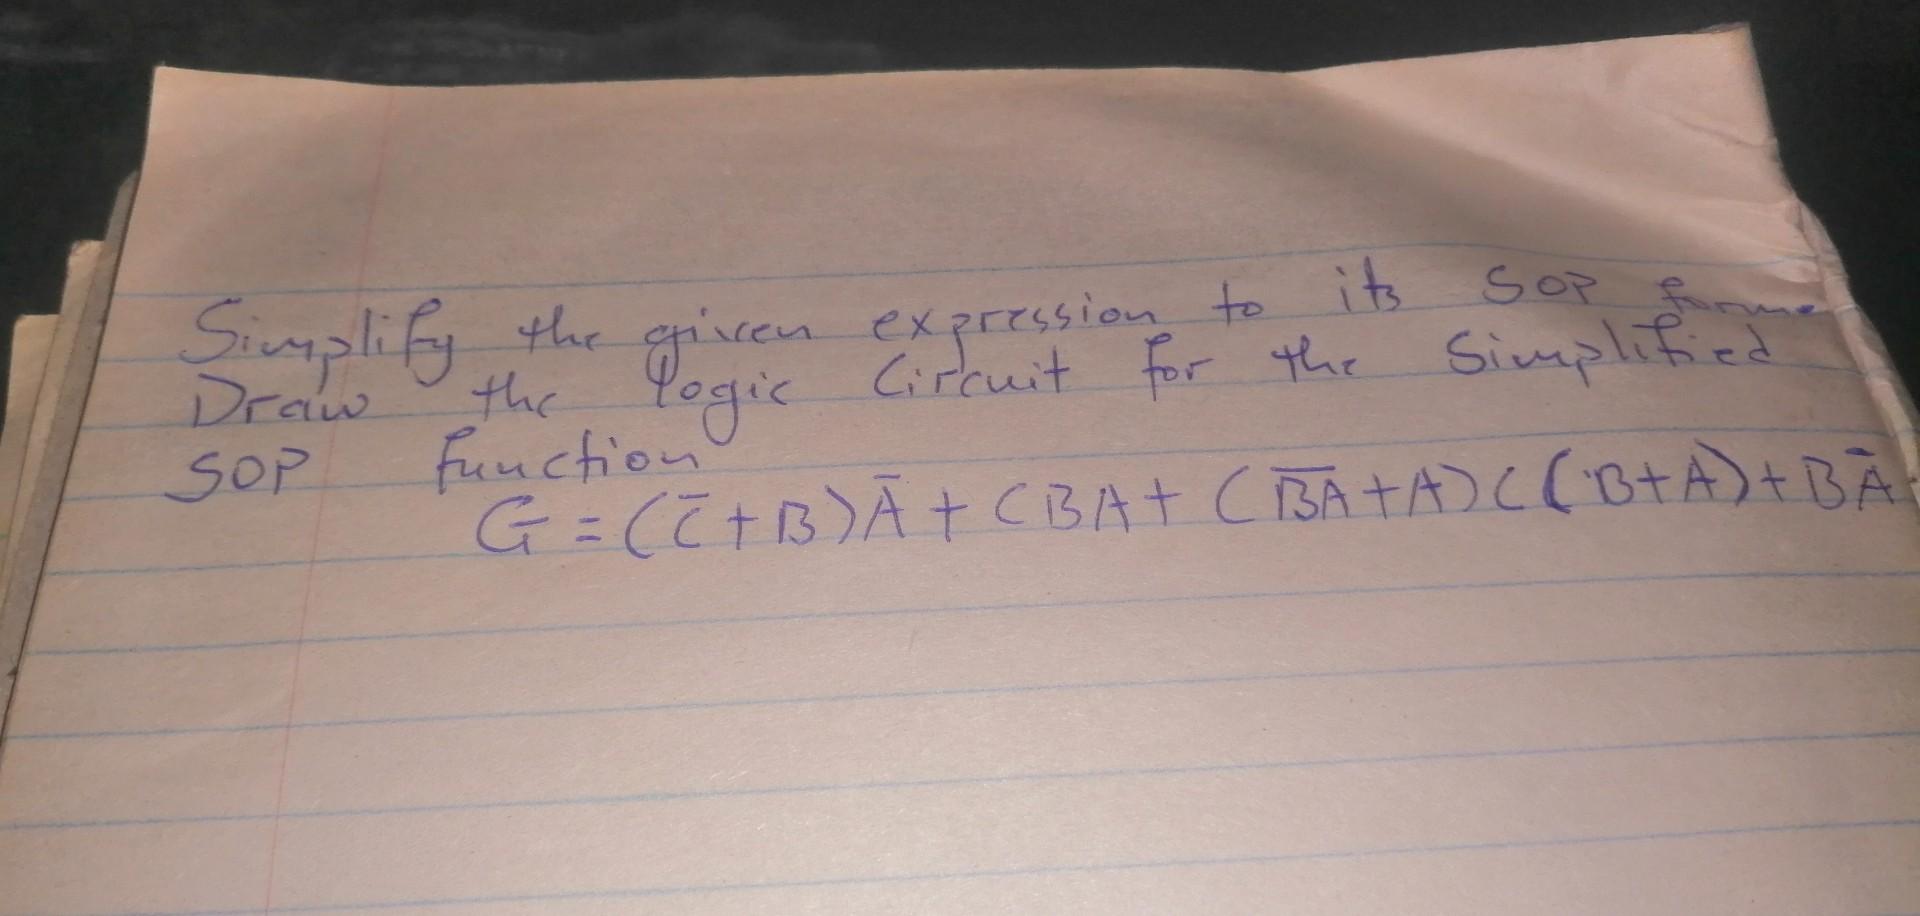 Simplify the given expression to its SOP form.
Draw the logic Circuit for the Simplified
SOP function
G = (C̅ + B)A̅ + CBA + (B̅A̅ + A)C(B+A) + BA̅